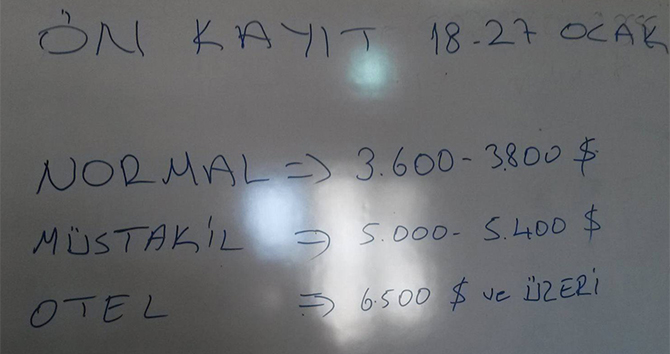 ÖN KAYIT 18-27 OCAK
NORMAL => 3.600 - 3.800 $
MÜSTAKİL => 5.000 - 5.400 $
OTEL => 6.500 $ ve ÜZERİ